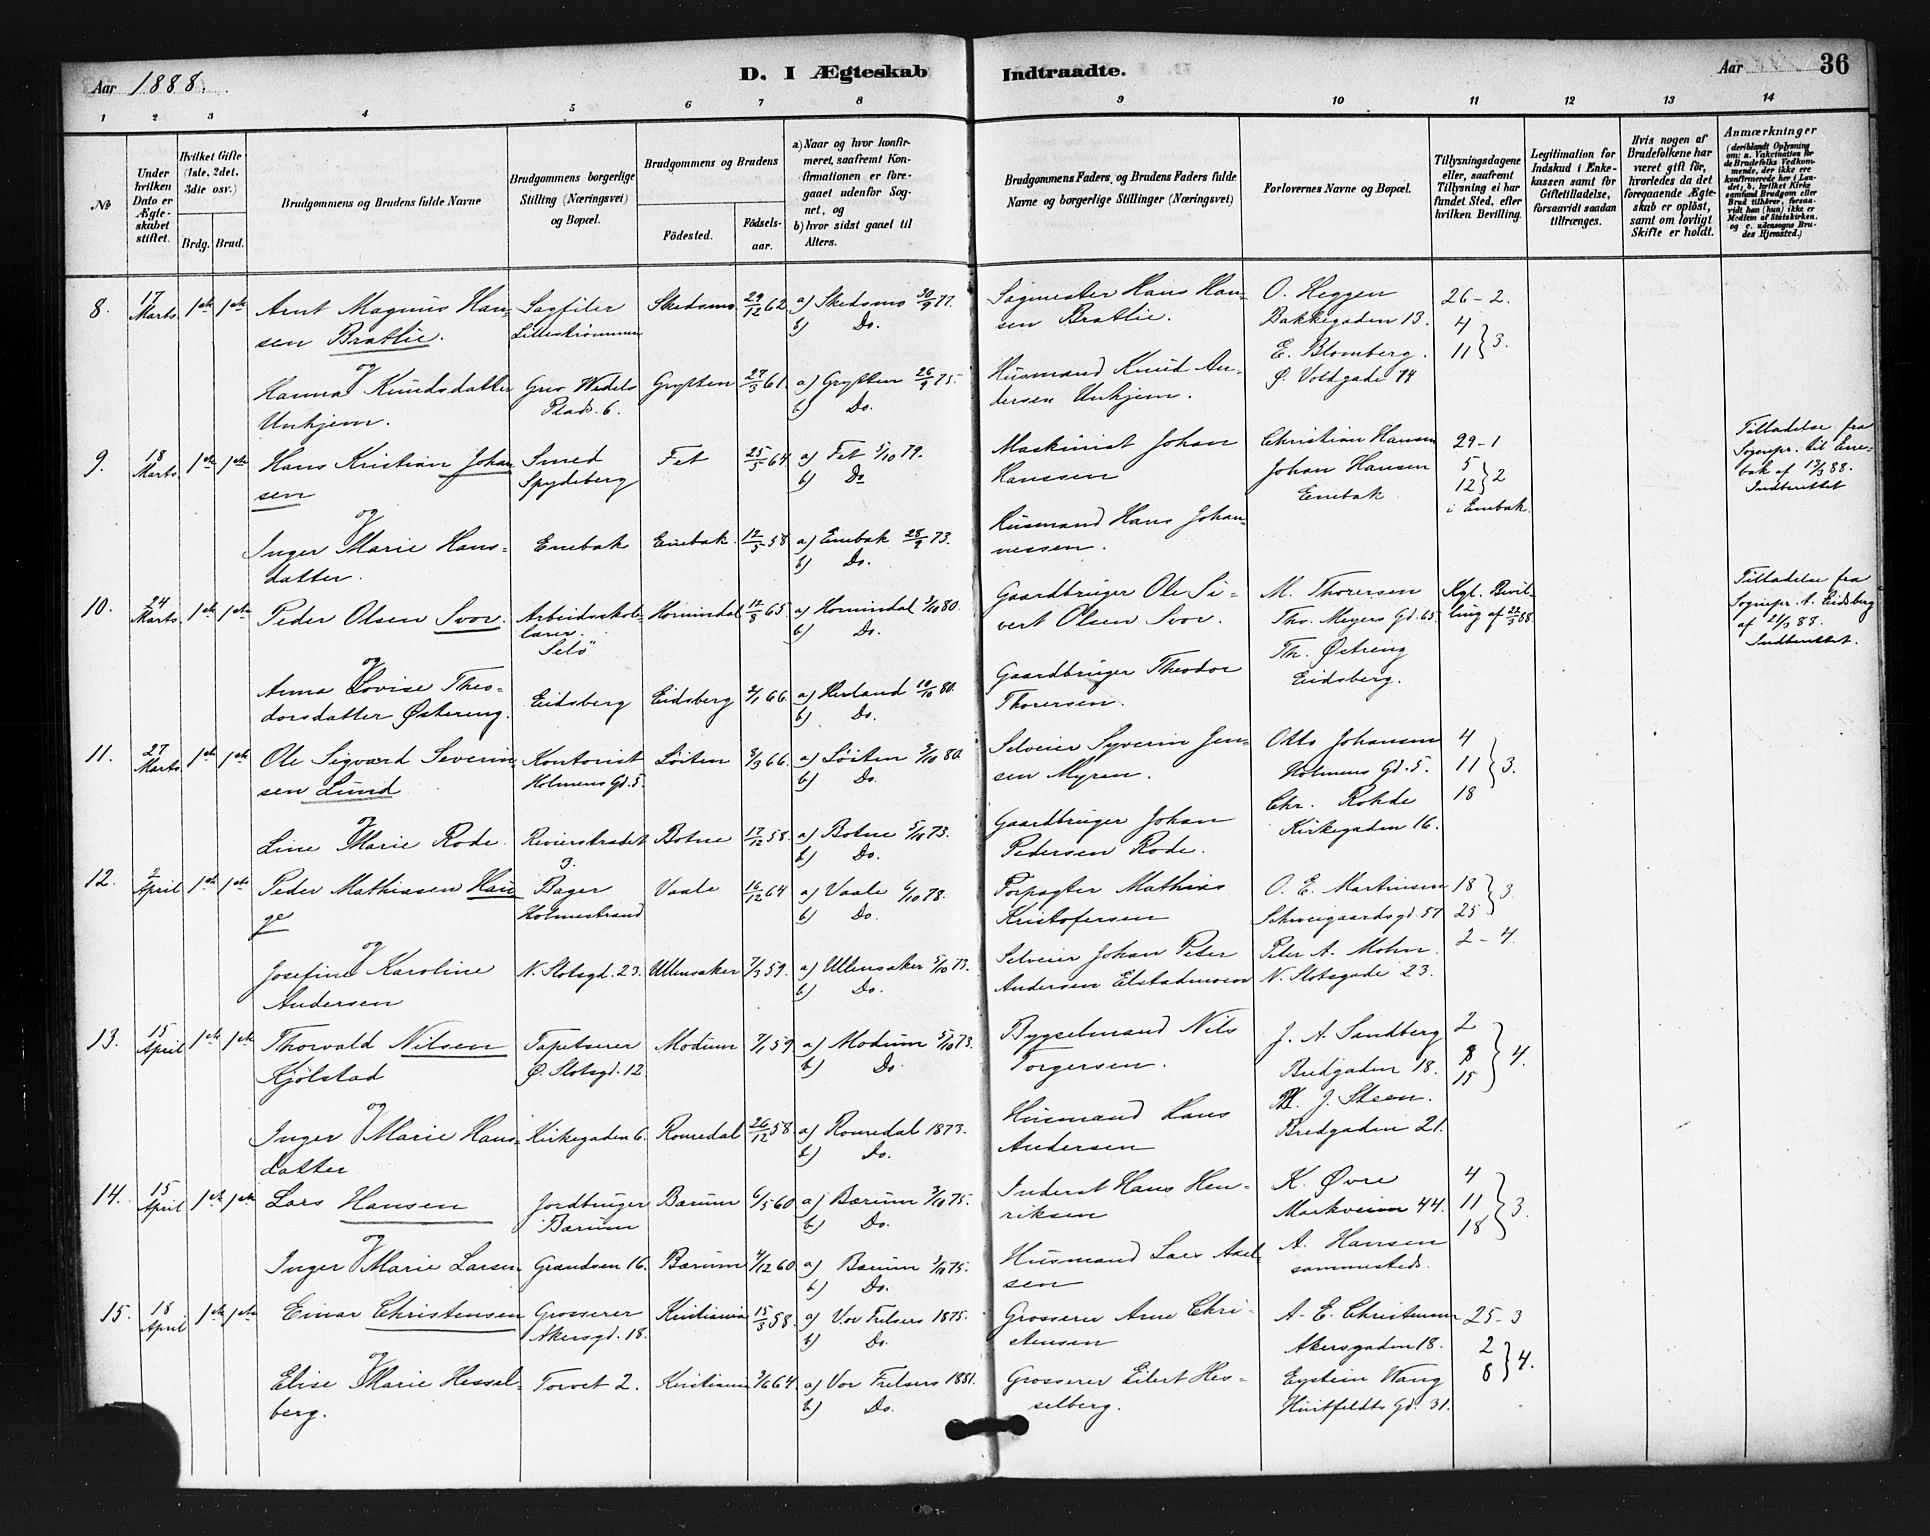 Aar 1888.
D. I Ægteskab Indtraadte.
Aar 36
1 2 3 4 5 6 7 8 9 10 11 12 13 14
No
Under hvilken Dato er Ægteskabet stiftet.
Hvilket Gifte (1ste, 2det, 3die osv.)
Brdg. Brud.
Brudgommens og Brudens fulde Navne
Brudgommens borgerlige Stilling (Næringsvei) og Bopæl.
Brudgommens og Brudens
Fødested.
Fødselsaar.
a) Naar og hvor konfirmeret, saafremt Konfirmationen er foregaaet udenfor Sognet, og
b) hvor sidst gaaet til Alters.
Brudgommens Faders, og Brudens Faders fulde Navne og borgerlige Stillinger (Næringsvei)
Forlovernes Navne og Bopæl.
Tillysningsdagene eller, saafremt Tillysning ei har fundet Sted, efter hvilken Bevilling.
Legitimation for Indskud i Enkekassen samt for Giftetilladelse, forsaavidt saadan tiltrænges.
Hvis nogen af Brudefolkene har været gift før, hvorledes da det foregaaende Ægteskab er opløst, samt om lovligt Skifte er holdt.
Anmærkninger
(deriblandt Oplysning om: a. Vakcination for de Brudefolks Vedkommende, der ikke ere konfirmerede her i Landet; b. hvilket Kirkesamfund Brudgom eller Brud tilhører, forsaavidt han (hun) ikke er Medlem af Statskirken, og c. udensogns Brudes Hjemsted.)
8. 17 Marts 1ste 1ste Arnt Magnus Han- Sagfiler Skedsmo 29/12 62 a) Skedsmo 30/9 77. Sagmester Hans Han- O. Heggen 26-2.
sen Brattlie. Lillestrømmen b) Do. sen Brattlie. Bakkegaden 13. 4
og E. Blomberg. 11 } 3.
Hanna Knudsdatter Grev Wedels Grytten 27/3 61 a) Grytten 26/9 75. Husmand Knud An- Ø. Voldgade 14
Unhjem. Plads. 6. b) Do. dersen Unhjem.
9. 18 Marts 1ste 1ste Hans Kristian Johan Smed Fet 25/5 64 a) Fet 5/10 79. Maskinist Johan Christian Hansen 29-1 Tilladelse fra
sen Spydeberg b) Do Hanssen Johan Hansen 5 Sognepr. til Ene-
og Enebak 12 } 2 bak af 13/3 88.
i Enebak. Indberettet
Inger Marie Hans- Enebak Enebak 12/5 58 a) Enebak 28/9 73. Husmand Hans Johan-
datter. b) Do. nessen.
10. 24 Marts 1ste 1ste Peder Olsen Svor. Arbeidsskole- Hornindal 12/8 65 a) Hornindal 3/10 80. Gaardbruger Ole Si- M. Thorersen Kgl. Bevil- Tilladelse fra
lærer. b) Do. vert Olsen Svor. Thv. Meyers Gd. 65. ling af 22/3 88. Sognepr. t. Eidsberg
Selö Th. Østreng af 21/3 88.
og Eidsberg. Indberettet.
Anna Lovise Theo- Eidsberg Eidsberg 2/1 66. a) Herland 10/10 80. Gaardbruger Theodor
dorsdatter Østereng. b) Do. Thorersen.
11. 27 Marts 1ste 1ste Ole Sigvard Severin- Kontorist Löiten 8/9 66. a) Löiten 3/10 80. Selveier Syverin Jen- Otto Johansen 4
sen Lund Holmens Gd. 5. b) Do. sen Myren. Holmens Gd. 5. 11 } 3.
og Chr. Rohde 18
Line Marie Rode. Revierstrædet Botne 17/12 58. a) Botne 5/10 73. Gaardbruger Johan Kirkegaden 16.
3. b) Do. Pedersen Rode.
12. 2 April 1ste 1ste Peder Mathiasen Hau- Bager Vaale 16/12 64 a) Vaale 6/10 78. Forpagter Mathias O. E. Martinsen 18 } 3.
ge Holmestrand b) Do. Kristofersen Schweigaardsgd. 57 25
og 2-4.
Josefine Karoline N. Slotsgd. 23. Ullensaker 7/3 59. a) Ullensaker 5/10 73. Selveier Johan Peter Peter A. Mohn.
Andersen b) Do. Andersen Elstadmoen N. Slotsgade 23.
13. 15 April 1ste 1ste Thorvald Nilsen Tapetserer Modum 7/1 59 a) Modum 5/10 73. Bygselmand Nils J. A. Sandberg 2
Kjölstad Ø. Slotsgd. 12. b) Do. Torgersen. Bredgaden 18. 8 } 4.
og J. Steen. 15
Inger Marie Hans- Kirkegaden 6. Romedal 26/12 58 a) Romedal 1873. Husmand Hans Bredgaden 21.
datter b) Do. Andersen
14. 15 April 1ste 1ste Lars Hansen Jordbruger Bærum 6/5 60 a) Bærum 3/10 75. Inderst Hans Hen- K. Øvre 4
Bærum b) Do. riksen Markveien 44. 11 } 3.
og A. Hansen 18
Inger Marie Larsen Grændsen 16. Bærum 4/12 60. a) Bærum 3/10 75. Husmand Lars Axel- sammesteds.
b) Do. sen
15. 18 April 1ste 1ste Einar Christensen Grosserer Kristiania 15/3 58. a) Vor Frelsers 1875. Grosserer Arne Chri- A. E. Christensen 25-3
Akersgd. 18. b) Do. stensen Akersgaden 18. 2
og 8 } 4.
Elise Marie Hessel- Torvet 2. Kristiania 3/6 64. a) Vor Frelsers 1881. Grosserer Eilert Hes- Eystein Wang
berg. b) Do. selberg. Huitfeldts Gd. 31.